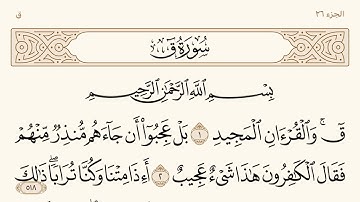 الجزء ٢٦
ق
سُورَةُ ق
بِسْمِ اللَّهِ الرَّحْمَٰنِ الرَّحِيمِ
قٓ ۚ وَالْقُرْءَانِ الْمَجِيدِ ١ بَلْ عَجِبُوٓا۟ أَن جَآءَهُم مُّنذِرٌ مِّنْهُمْ
فَقَالَ الْكَٰفِرُونَ هَٰذَا شَىْءٌ عَجِيبٌ ٢ أَءِذَا مِتْنَا وَكُنَّا تُرَابًا ۖ ذَٰلِكَ
٥١٨